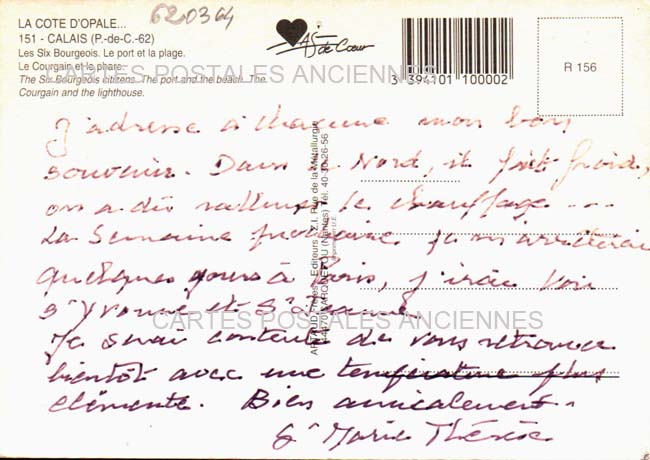 LA COTE D'OPALE...
620364
151 - CALAIS (P.-de-C.-62)
Les Six Bourgeois. Le port et la plage.
Le Courgain et le phare.
The Six Bourgeois citizens. The port and the beach. The
Courgain and the lighthouse.
As de Cœur
3 394101 100002
R 156
CARTES POSTALES ANCIENNES
J'adresse à chacune mon bon
souvenir. Dans le Nord, il fait froid,
on a dû rallumer le chauffage ...
La semaine prochaine je m'arrêterai
quelques jours à Paris, j'irai voir
Sr Yvonne et Sr
Je serai contente de vous retrouver
bientôt avec une température plus
clémente. Bien amicalement.
Sr Marie Thérèse
ARTAUD Frères - Editeurs - Z.I. Rue de la Métallurgie
44470 CARQUEFOU (Nantes) Tél. 40-30-26-56
CARTES POSTALES ANCIENNES